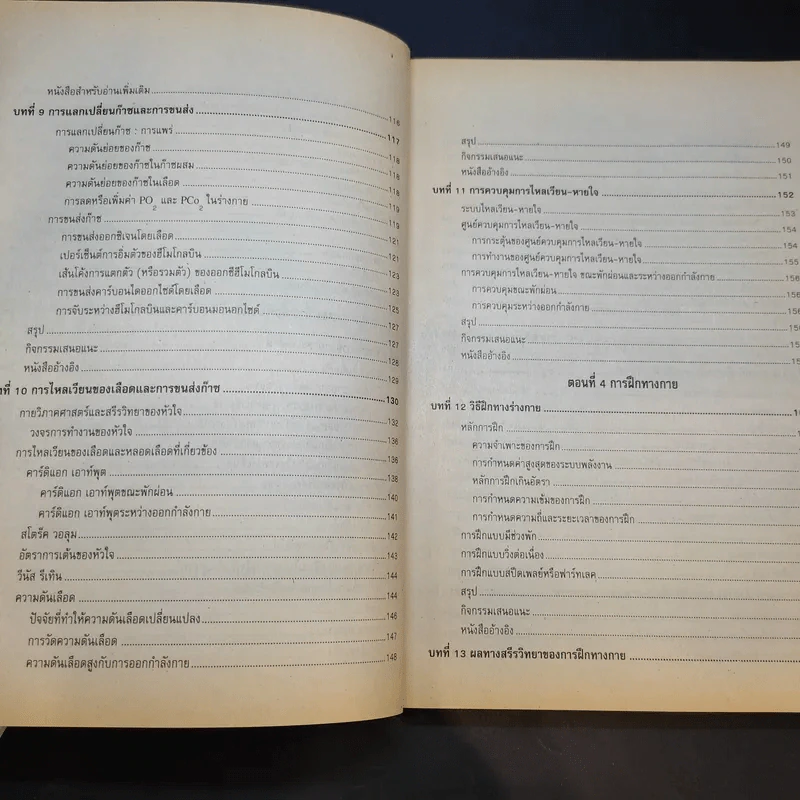 หนังสือสำหรับอ่านเพิ่มเติม 116
บทที่ 9 การแลกเปลี่ยนก๊าซและการขนส่ง 117
การแลกเปลี่ยนก๊าซ : การแพร่ 118
ความดันย่อยของก๊าซ 118
ความดันย่อยของก๊าซในก๊าซผสม 118
ความดันย่อยของก๊าซในเลือด 119
การลดหรือเพิ่มค่า PO2 และ PCo2 ในร่างกาย 119
การขนส่งก๊าซ 121
การขนส่งออกซิเจนโดยเลือด 121
เปอร์เซ็นต์การอิ่มตัวของฮีโมโกลบิน 123
เส้นโค้งการแตกตัว (หรือรวมตัว) ของออกซีฮีโมโกลบิน 123
การขนส่งคาร์บอนไดออกไซด์โดยเลือด 125
การจับระหว่างฮีโมโกลบินและคาร์บอนมอนอกไซด์ 127
สรุป 127
กิจกรรมเสนอแนะ 128
หนังสืออ้างอิง 129
ที่ 10 การไหลเวียนของเลือดและการขนส่งก๊าซ 130
กายวิภาคศาสตร์และสรีรวิทยาของหัวใจ 132
วงจรการทำงานของหัวใจ 136
การไหลเวียนของเลือดและหลอดเลือดที่เกี่ยวข้อง 136
คาร์ดิแอก เอาท์พุต 138
คาร์ดิแอก เอาท์พุตขณะพักผ่อน 140
คาร์ดิแอก เอาท์พุตระหว่างออกกำลังกาย 141
สโตร๊ค วอลุม 142
อัตราการเต้นของหัวใจ 143
วีนัส รีเทิน 144
ความดันเลือด 144
ปัจจัยที่ทำให้ความดันเลือดเปลี่ยนแปลง 146
การวัดความดันเลือด 147
ความดันเลือดสูงกับการออกกำลังกาย 148
สรุป 149
กิจกรรมเสนอแนะ 150
หนังสืออ้างอิง 151
บทที่ 11 การควบคุมการไหลเวียน-หายใจ 152
ระบบไหลเวียน-หายใจ 153
ศูนย์ควบคุมการไหลเวียน-หายใจ 154
การกระตุ้นของศูนย์ควบคุมการไหลเวียน-หายใจ 154
การทำงานของศูนย์ควบคุมการไหลเวียน-หายใจ 155
การควบคุมการไหลเวียน-หายใจ ขณะพักผ่อนและระหว่างออกกำลังกาย 156
การควบคุมขณะพักผ่อน 156
การควบคุมระหว่างออกกำลังกาย 156
สรุป
กิจกรรมเสนอแนะ
หนังสืออ้างอิง
ตอนที่ 4 การฝึกทางกาย
บทที่ 12 วิธีฝึกทางร่างกาย
หลักการฝึก
ความจำเพาะของการฝึก
การกำหนดค่าสูงสุดของระบบพลังงาน
หลักการฝึกเกินอัตรา
การกำหนดความเข้มของการฝึก
การกำหนดความถี่และระยะเวลาของการฝึก
การฝึกแบบมีช่วงพัก
การฝึกแบบวิ่งต่อเนื่อง
การฝึกแบบสปีดเพลย์หรือฟาร์ทเลค
สรุป
กิจกรรมเสนอแนะ
หนังสืออ้างอิง
บทที่ 13 ผลทางสรีรวิทยาของการฝึกทางกาย